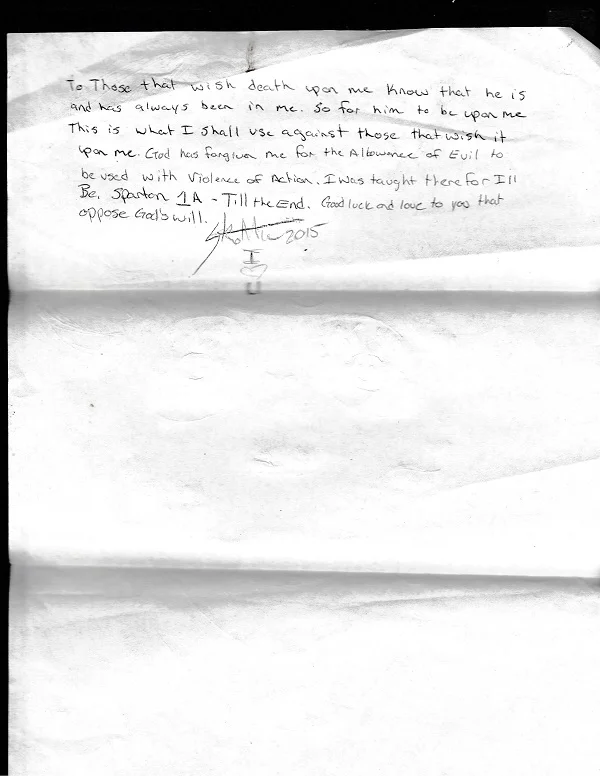 To Those that wish death upon me Know that he is
and has always been in me. So for him to be upon me
This is what I shall use against those that wish it
Upon me. God has forgiven me for the Allowance of Evil to
be used with Violence of Action. I was taught there for I'll
Be. Spartan 1A - Till the End. Good luck and love to you that
oppose God's will.
2015
I
U